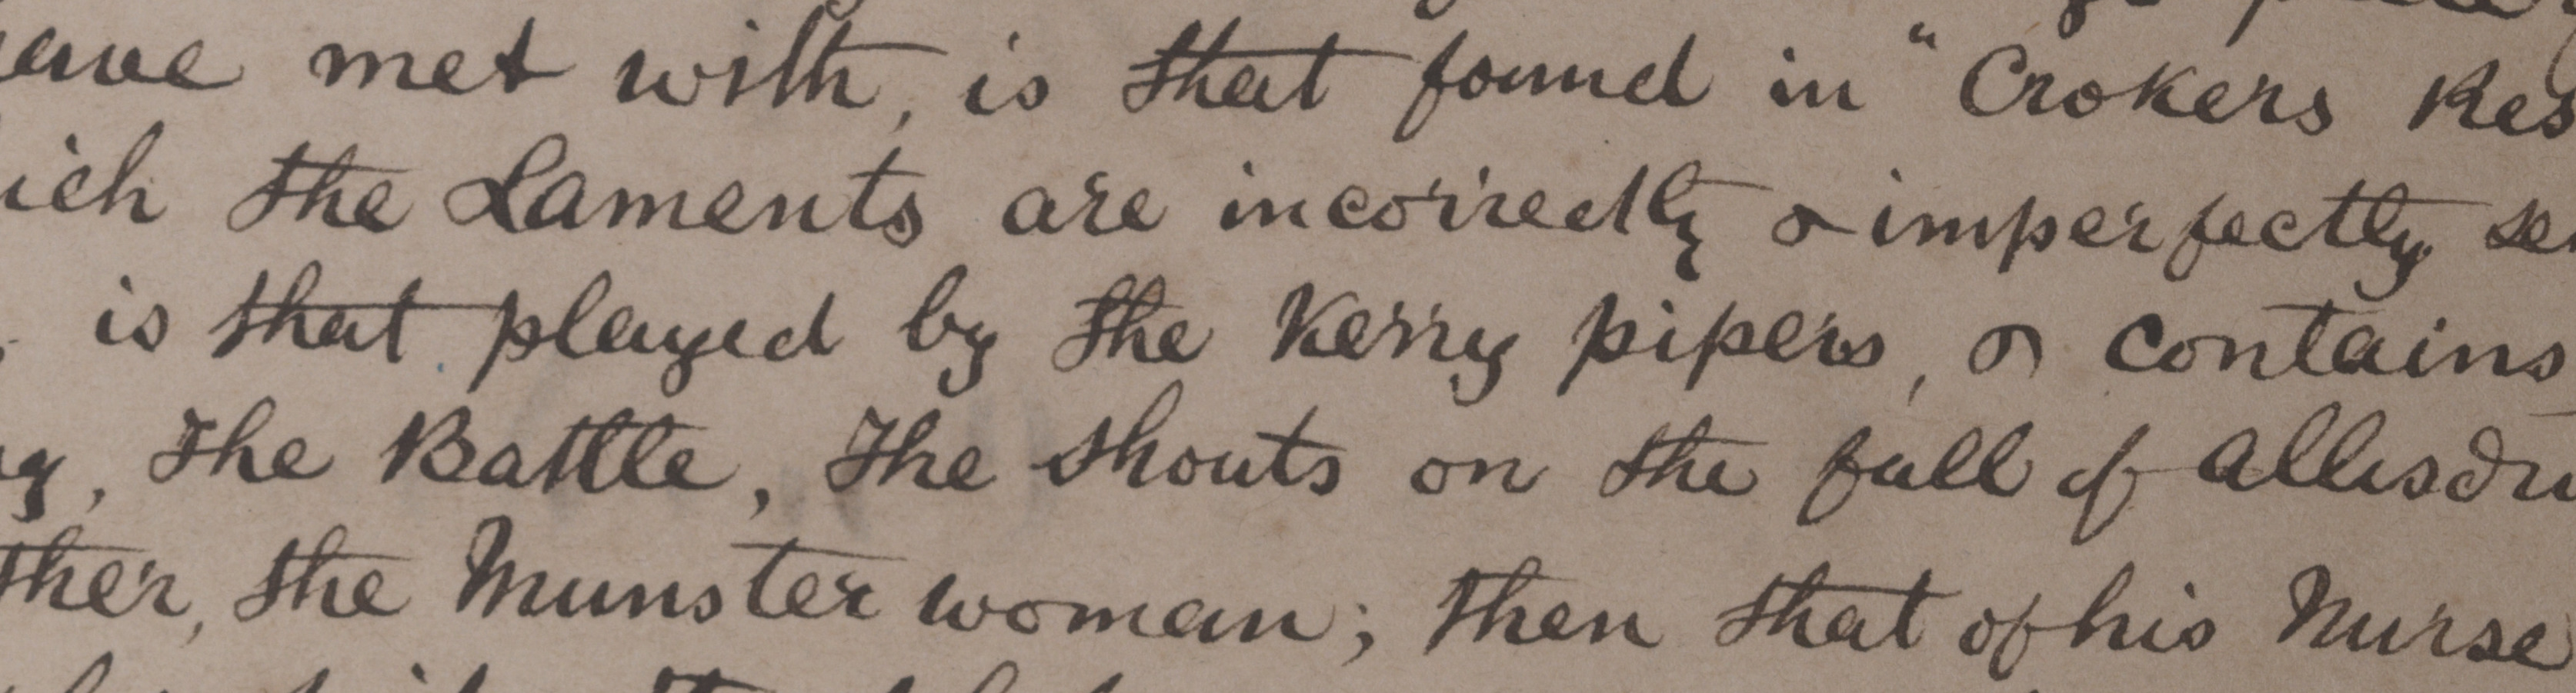 eave met with, is that found in "Crokers Res
ich the Laments are incorrectly & imperfectly se
is that played by the Kerry pipers, & contains
g, The Battle, The shouts on the fall of Allisdru
ther, the Munster woman; then that of his Nurse